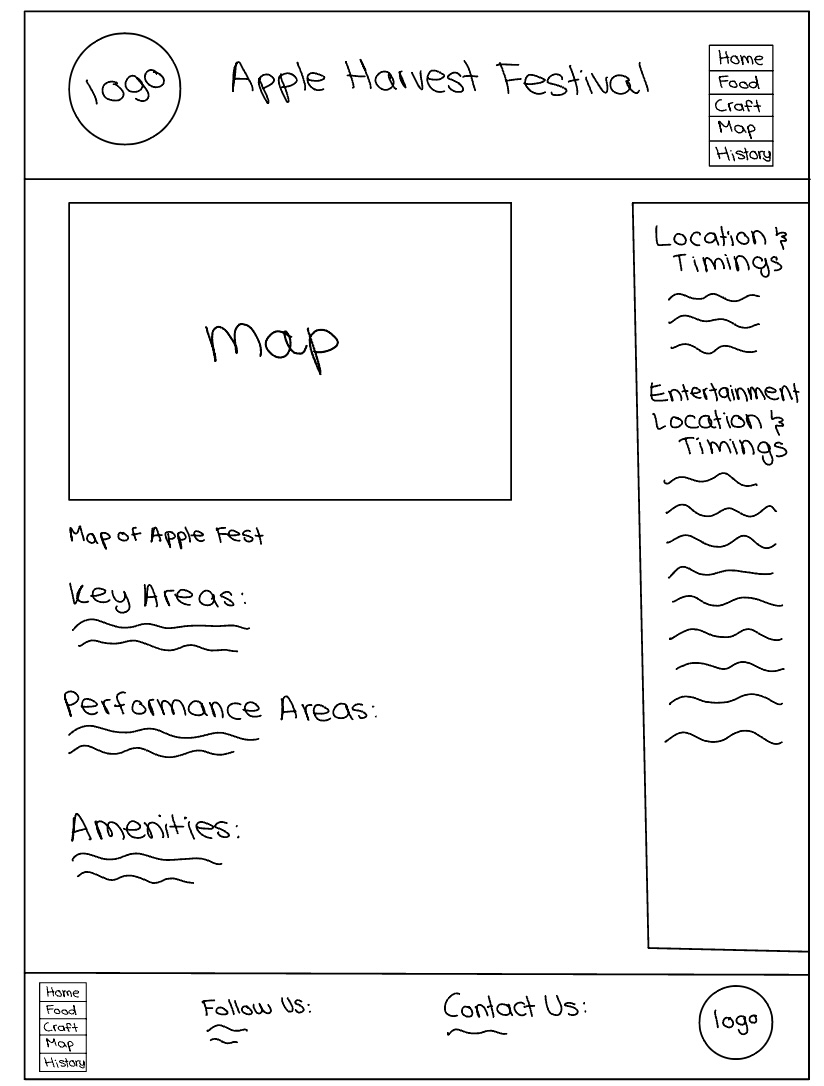 logo
Apple Harvest Festival
Home
Food
Craft
Map
History
Map
Map of Apple Fest
Key Areas:
Performance Areas:
Amenities:
Location &
Timings
Entertainment
Location &
Timings
Home
Food
Craft
Map
History
Follow Us:
Contact Us:
logo